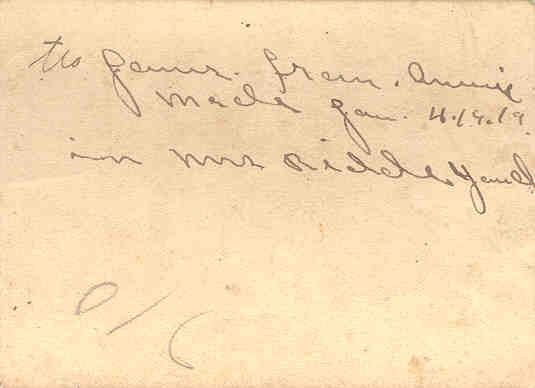 to James. from. Annie
made Jan. 4.19.19.
in Mrs Riddls Yard